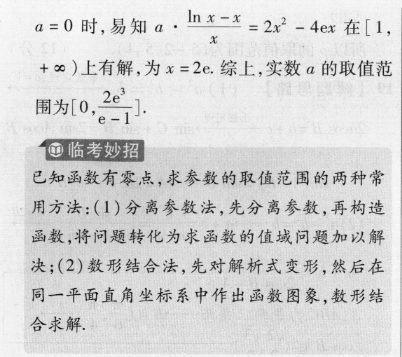 a = 0 时,易知 a · (ln x − x)/x = 2x² − 4ex 在[1,
+∞)上有解,为 x = 2e. 综上,实数 a 的取值范
围为[0, 2e³/(e − 1)].
临考妙招
已知函数有零点,求参数的取值范围的两种常
用方法:(1)分离参数法,先分离参数,再构造
函数,将问题转化为求函数的值域问题加以解
决;(2)数形结合法,先对解析式变形,然后在
同一平面直角坐标系中作出函数图象,数形结
合求解.